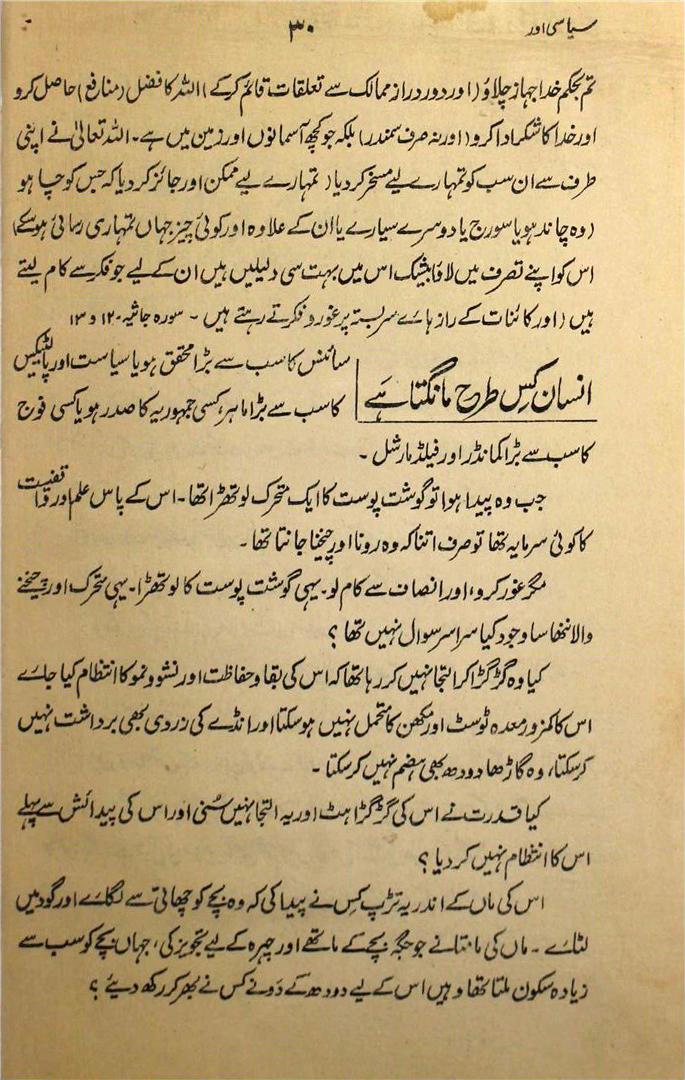 سیاسی اور
۳۰
تم بحکم خدا جہاز چلاؤ (اور دور دراز ممالک سے تعلقات قائم کرکے) اللہ کا فضل (منافع) حاصل کرو
اور خدا کا شکر ادا کرو (اور نہ صرف سمندر) بلکہ جو کچھ آسمانوں اور زمین میں ہے۔ اللہ تعالیٰ نے اپنی
طرف سے ان سب کو تمہارے لیے مسخر کردیا (تمہارے لیے ممکن اور جائز کردیا کہ جس کو چاہو
(وہ چاند ہو یا سورج یا دوسرے سیارے یا ان کے علاوہ اور کوئی چیز جہاں تمہاری رسائی ہوسکے)
اس کو اپنے تصرف میں لاؤ) بیشک اس میں بہت سی دلیلیں ہیں ان کے لیے جو فکر سے کام لیتے
ہیں (اور کائنات کے راز ہائے سربستہ پر غور و فکر کرتے رہتے ہیں۔ سورہ جاثیہ ۱۲۰ و ۱۳
انسان کس طرح مانگتا ہے
سائنس کا سب سے بڑا محقق ہو یا سیاست اور پالٹیکس
کا سب سے بڑا ماہر، کسی جمہوریہ کا صدر ہو یا کسی فوج
کا سب سے بڑا کمانڈر اور فیلڈ مارشل۔
جب وہ پیدا ہوا تو گوشت پوست کا ایک متحرک لوتھڑا تھا۔ اس کے پاس علم اور واقفیت
کا کوئی سرمایہ تھا تو صرف اتنا کہ وہ رونا اور چیخنا جانتا تھا۔
مگر غور کرو، اور انصاف سے کام لو۔ یہی گوشت پوست کا لوتھڑا۔ یہی متحرک اور چیخنے
والا ننھا سا وجود کیا سراسر سوال نہیں تھا؟
کیا وہ گڑگڑا کر التجا نہیں کر رہا تھا کہ اس کی بقا و حفاظت اور نشوونمو کا انتظام کیا جائے
اس کا کمزور معدہ ٹوسٹ اور مکھن کا متحمل نہیں ہوسکتا اور انڈے کی زردی بھی برداشت نہیں
کرسکتا، وہ گاڑھا دودھ بھی ہضم نہیں کرسکتا۔
کیا قدرت نے اس کی گڑگڑاہٹ اور یہ التجا نہیں سُنی اور اس کی پیدائش سے پہلے
اس کا انتظام نہیں کردیا؟
اس کی ماں کے اندر یہ تڑپ کس نے پیدا کی کہ وہ بچے کو چھاتی سے لگائے اور گود میں
لٹائے۔ ماں کی مامتا نے جو جگہ بچے کے ماتھے اور چہرہ کے لیے تجویز کی، جہاں بچے کو سب سے
زیادہ سکون ملتا تھا وہیں اس کے لیے دودھ کے دونے کس نے بھر کر رکھ دیئے؟